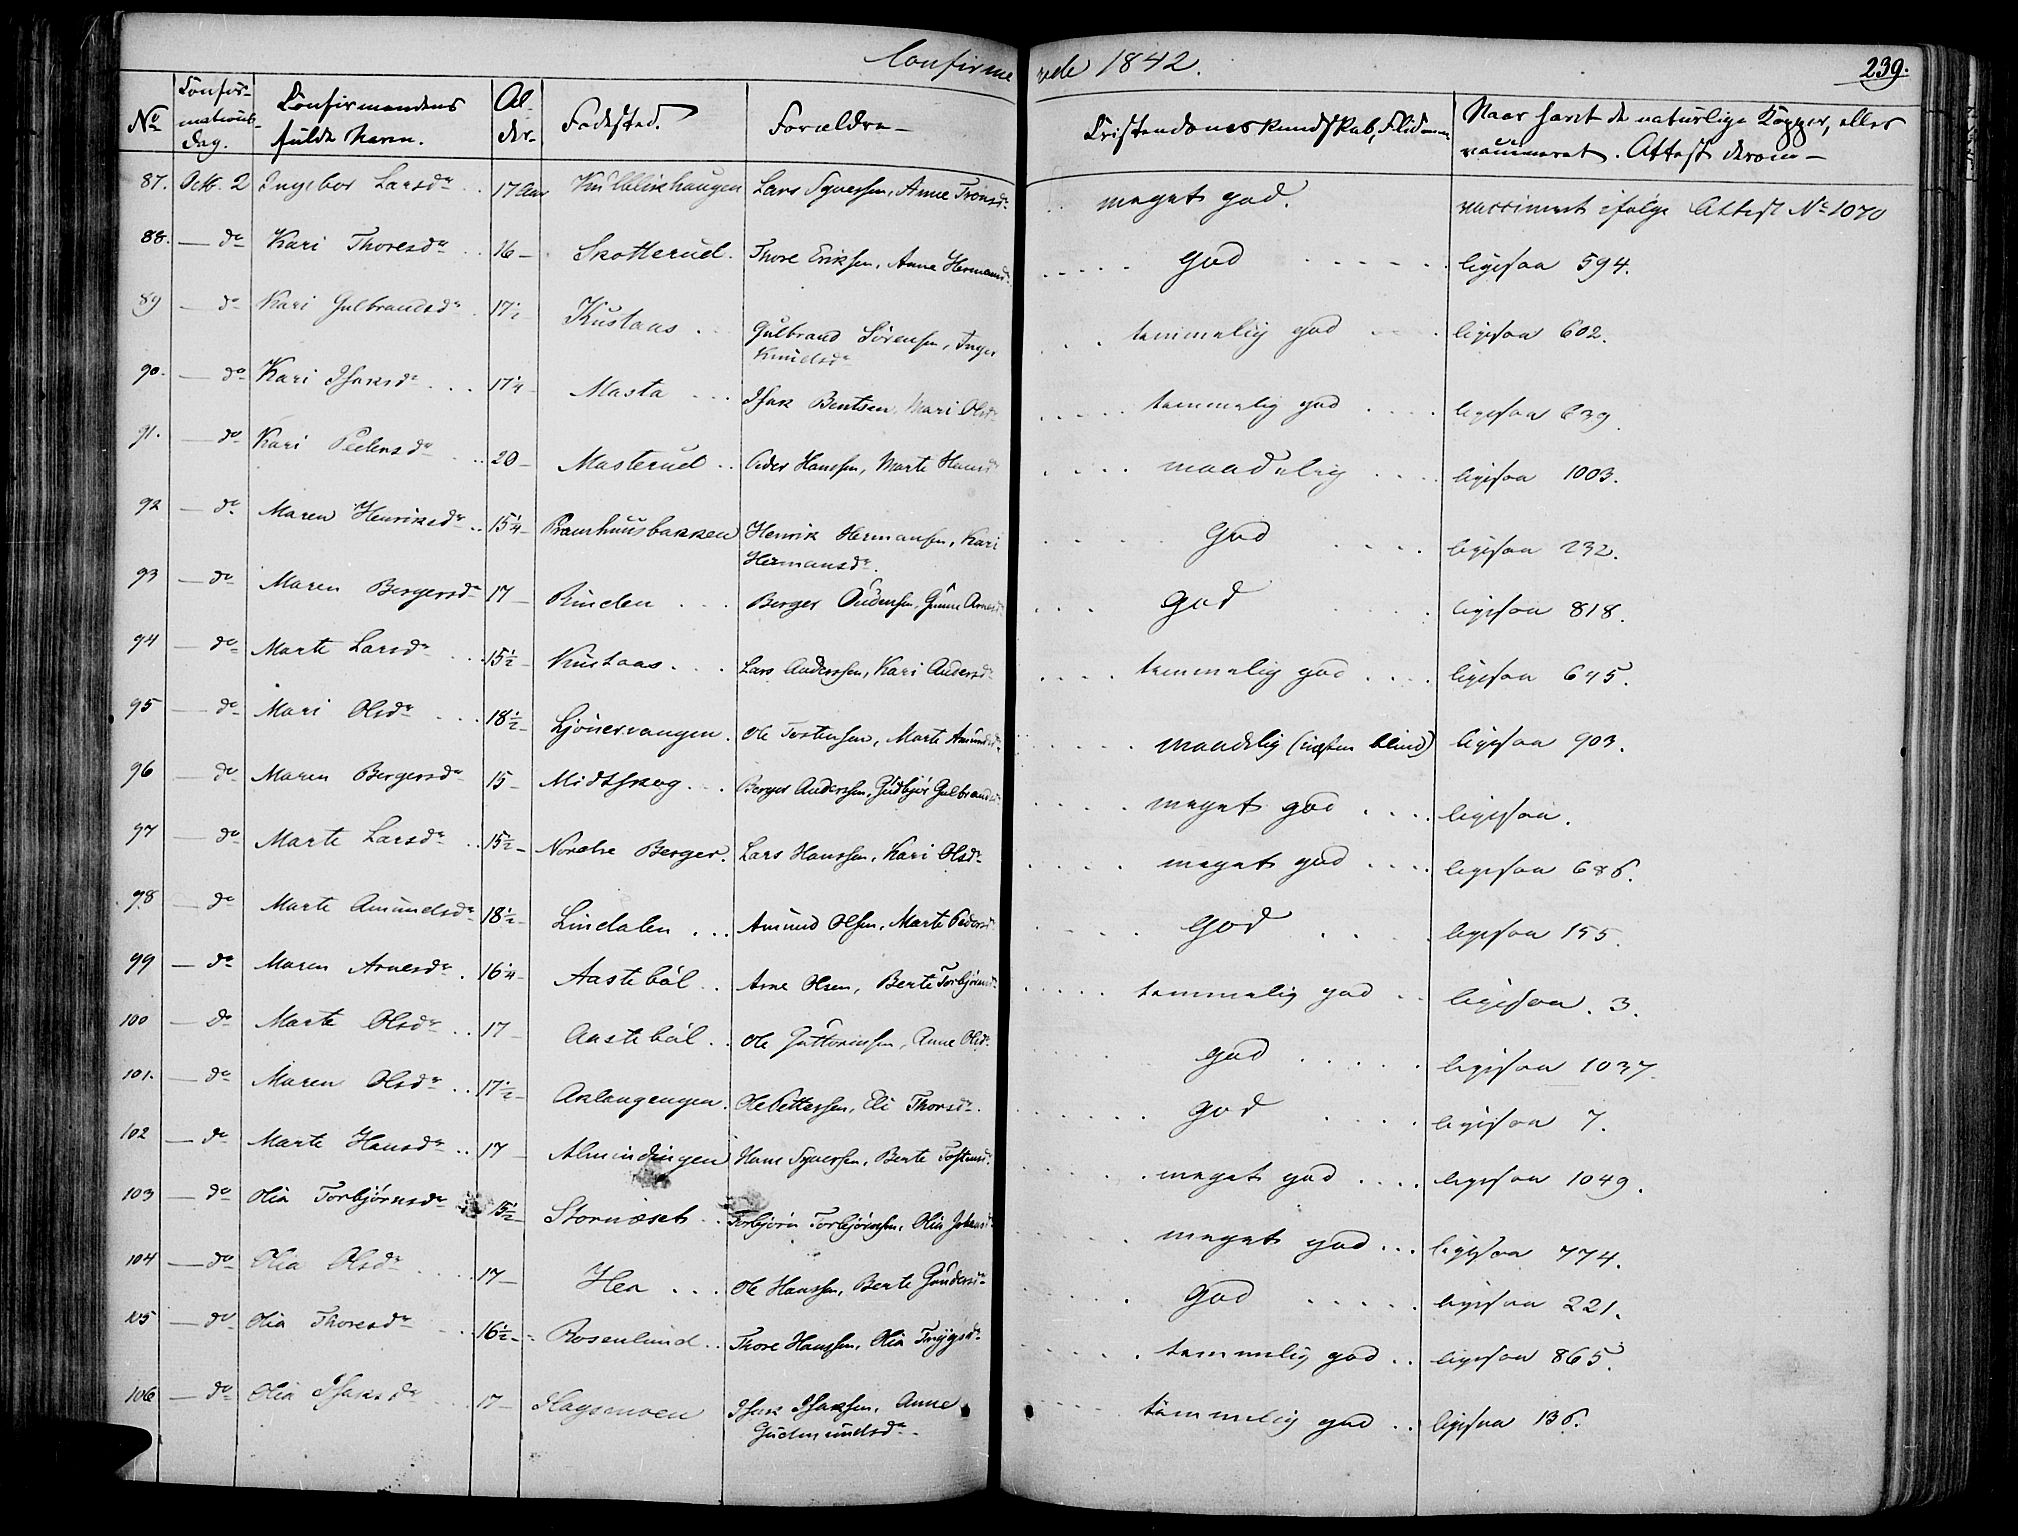 Confirmerede 1842.
239.
No Confirmations Dag. Confirmandens fulde Navn. Alder Fødested. Forældre Cristendomskundskab, Flid Naar havt de naturlige Kopper, eller vaccineret. Attest derom
87. Octb. 2 Ingebor Larsdr 17 Aar Kulblikhaugen Lars Syversen, Anne Tronsdr meget god. vaccineret ifølge Attest No 1070
88. do Kari Thoresdr 16 Skotterud. Thore Eriksen, Anne Hermansdr god ligesaa 594.
89 do Kari Gulbrandsdr 17½ Kustaas Gulbrand Sørensen, Inger Knudsdr temmelig god ligesaa 602.
90. do Kari Isaksdr 17¼ Masta Isak Bentsen, Mari Olsdr temmelig god ligesaa 639
91. do Kari Pedersdr 20 Masterud Peder Hansen, Marte Hansdr maadelig ligesaa 1003.
92 do Maren Henriksdr 15¼ Bramhuusbakken Henrik Hermansen, Kari Hermansdr. God ligesaa 232.
93 do Maren Bergersdr 17 Rinden Berger Audensen, Gunne Arnesdr god ligesaa 818.
94 do Marte Larsdr 15½ Kustaas Lars Anderssen, Kari Andersdr temmelig god ligesaa 645.
95 do Mari Olsdr 18½ Ljönervangen. Ole Tostensen, Marte Amundsdr maadelig (næsten blind) ligesaa 903.
96 do Maren Bergersdr 15 Midtskog Berger Anderssen, Gudbjør Gulbrandsdr meget god ligesaa.
97 do Marte Larsdr 15½ Nordre Berger. Lars Hanssen, Kari Olsdr meget god ligesaa 686.
98 do Marte Amundsdr 18½ Lindalen Amund Olsen, Marte Pedersdr God ligesaa 155.
99 do Maren Arnesdr. 16¼ Aastebøl Arne Olsen, Berte Torbjørnsdr temmelig god ligesaa. 3.
100 do Marte Olsdr 17 Aastebøl Ole Guttormsen, Anne Olsdr. god ligesaa 1037.
101. do Maren Olsdr 17½ Aslangengen. Ole Pettersen, Eli Thorsdr. god ligesaa 7.
102 do Marte Hansdr 17 Almindingen Hans Syversen, Berte Tostensdr. meget god ligesaa 1049.
103 do Olia Torbjørnsdr 15½ Stornæset Torbjørn Torbjørnsen, Olia Johansdr meget god ligesaa 774.
104 do Olia Olsdr 17 Hea Ole Hanssen, Berte Gundersdr God ligesaa 221.
105 do Olia Thoresdr 16½ Rosenlund Thore Hanssen, Olia Trygsdr temmelig god ligesaa 865.
106 do Olia Isaksdr 17 Hagemoen Isak Isaksen, Anne Gudmundsdr temmelig god ligesaa 136.